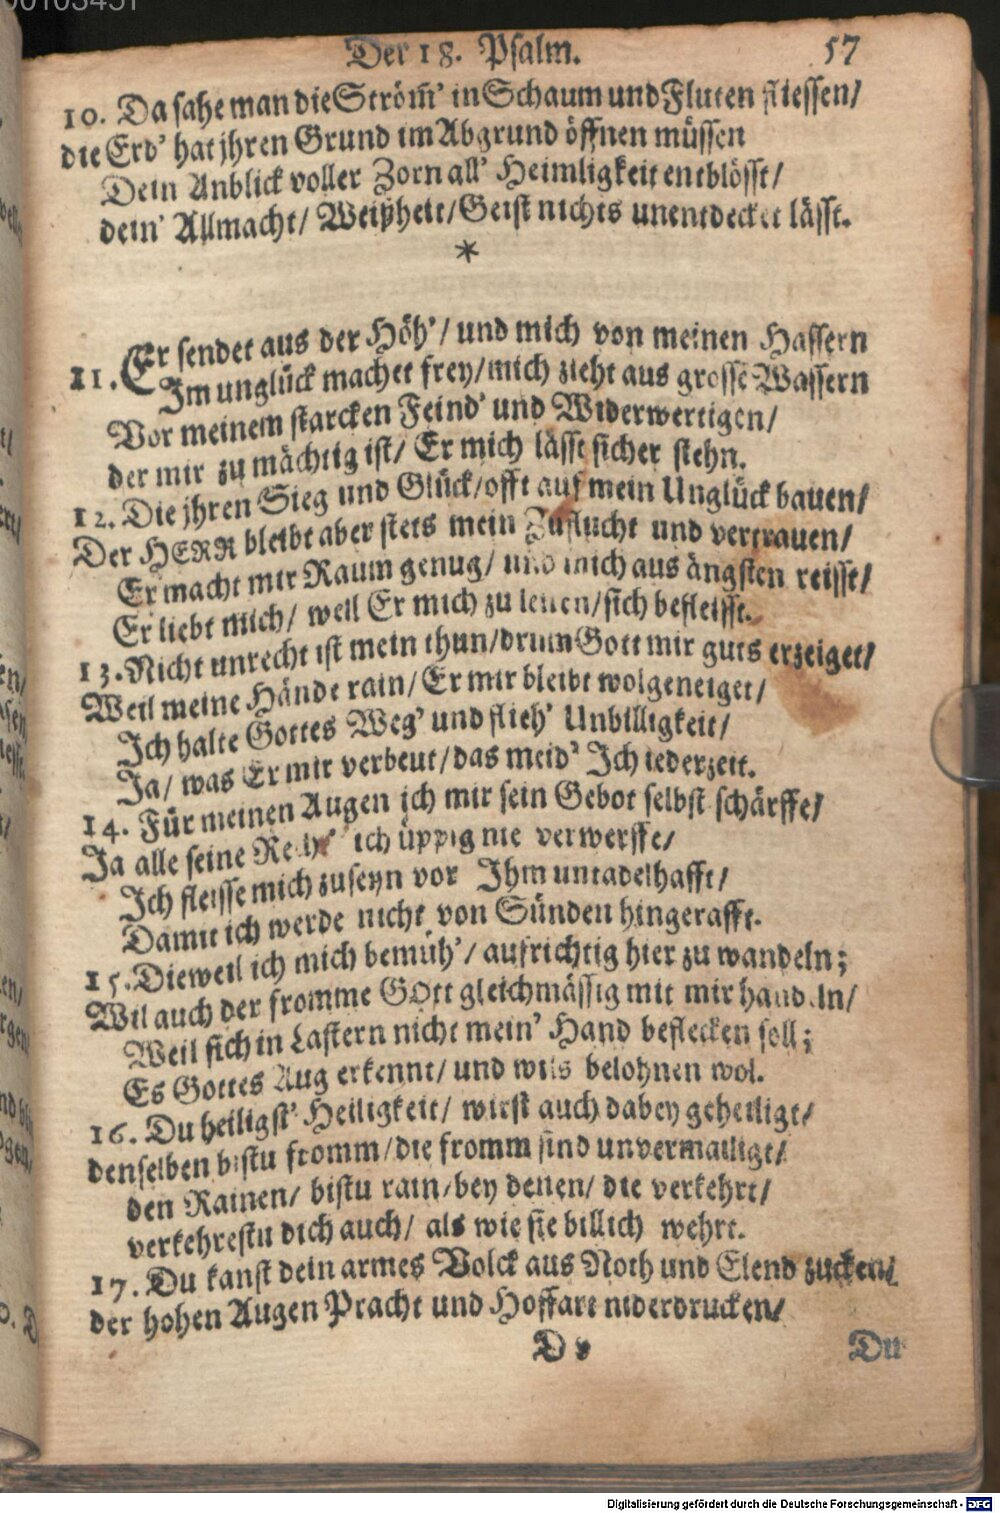 Der 18. Psalm. 57
10. Da sahe man die Ström̃' in Schaum und Fluten fliessen/
die Erd' hat jhren Grund im Abgrund öffnen müssen
Dein Anblick voller Zorn all' Heimligkeit entblösst/
dein' Allmacht/ Weißheit/ Geist nichts unentdecket lässt.
*
11. Er sendet aus der Höh'/ und mich von meinen Hassern
Im unglück machet frey/ mich zieht aus grosse Wassern
Vor meinem starcken Feind' und Widerwertigen/
der mir zu mächtig ist/ Er mich lässt sicher stehn.
12. Die jhren Sieg und Glück/ offt auf mein Unglück bauen/
Der HERR bleibt aber stets mein Zuflucht und vertrauen/
Er macht mir Raum genug/ und mich aus ängsten reisst/
Er liebt mich/ weil Er mich zu leiten/ sich befleisst.
13. Nicht unrecht ist mein thun/ drum Gott mir guts erzeiget/
Weil meine Hände rain/ Er mir bleibt wolgeneiget/
Ich halte Gottes Weg' und flieh' Unbilligkeit/
Ja/ was Er mir verbeut/ das meid' Ich iederzeit.
14. Für meinen Augen ich mir sein Gebot selbst schärffe/
Ja alle seine ich üppig nie verwerffe/
Ich fleisse mich zuseyn vor Ihm untadelhafft/
Damit ich werde nicht von Sünden hingerafft.
15. Dieweil ich mich bemüh'/ aufrichtig hier zu wandeln;
Wil auch der fromme GOtt gleichmässig mit mir handeln/
Weil sich in Lastern nicht mein' Hand beflecken soll;
Es Gottes Aug erkennt/ und wils belohnen wol.
16. Du heiligst' Heiligkeit/ wirst auch dabey geheiligt/
denselben bistu fromm/ die fromm sind unvermailigt/
den Rainen/ bistu rain/ bey denen/ die verkehrt/
verkehrestu dich auch/ als wie sie billich wehrt.
17. Du kanst dein armes Volck aus Noth und Elend zucken/
der hohen Augen Pracht und Hoffart niderdrucken/
D v Du
Digitalisierung gefördert durch die Deutsche Forschungsgemeinschaft - DFG